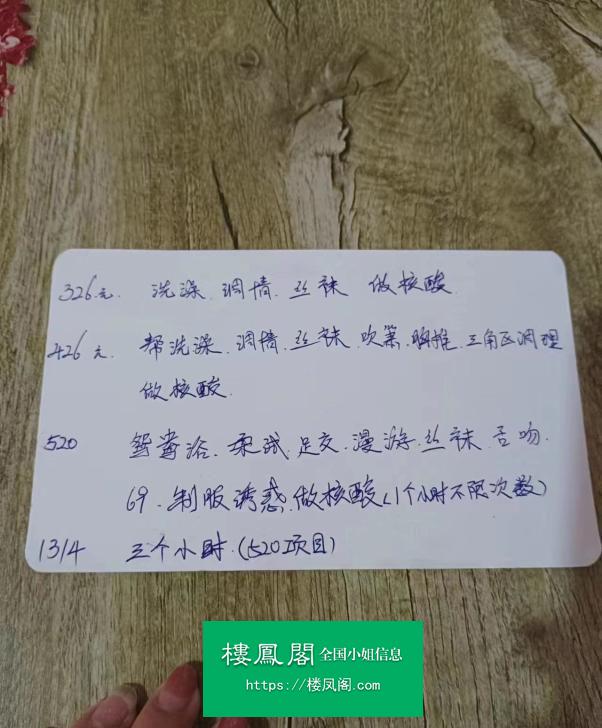 326元. 洗澡. 调情. 丝袜 做核酸.
426元. 帮洗澡. 调情. 丝袜. 吹箫. 胸推. 三角区调理
做核酸.
520 鸳鸯浴. 足交. 漫游. 丝袜. 舌吻.
69. 制服诱惑. 做核酸(1个小时不限次数)
1314 三个小时.(520项目)
樓鳳閣 全国小姐信息
https://楼凤阁.com